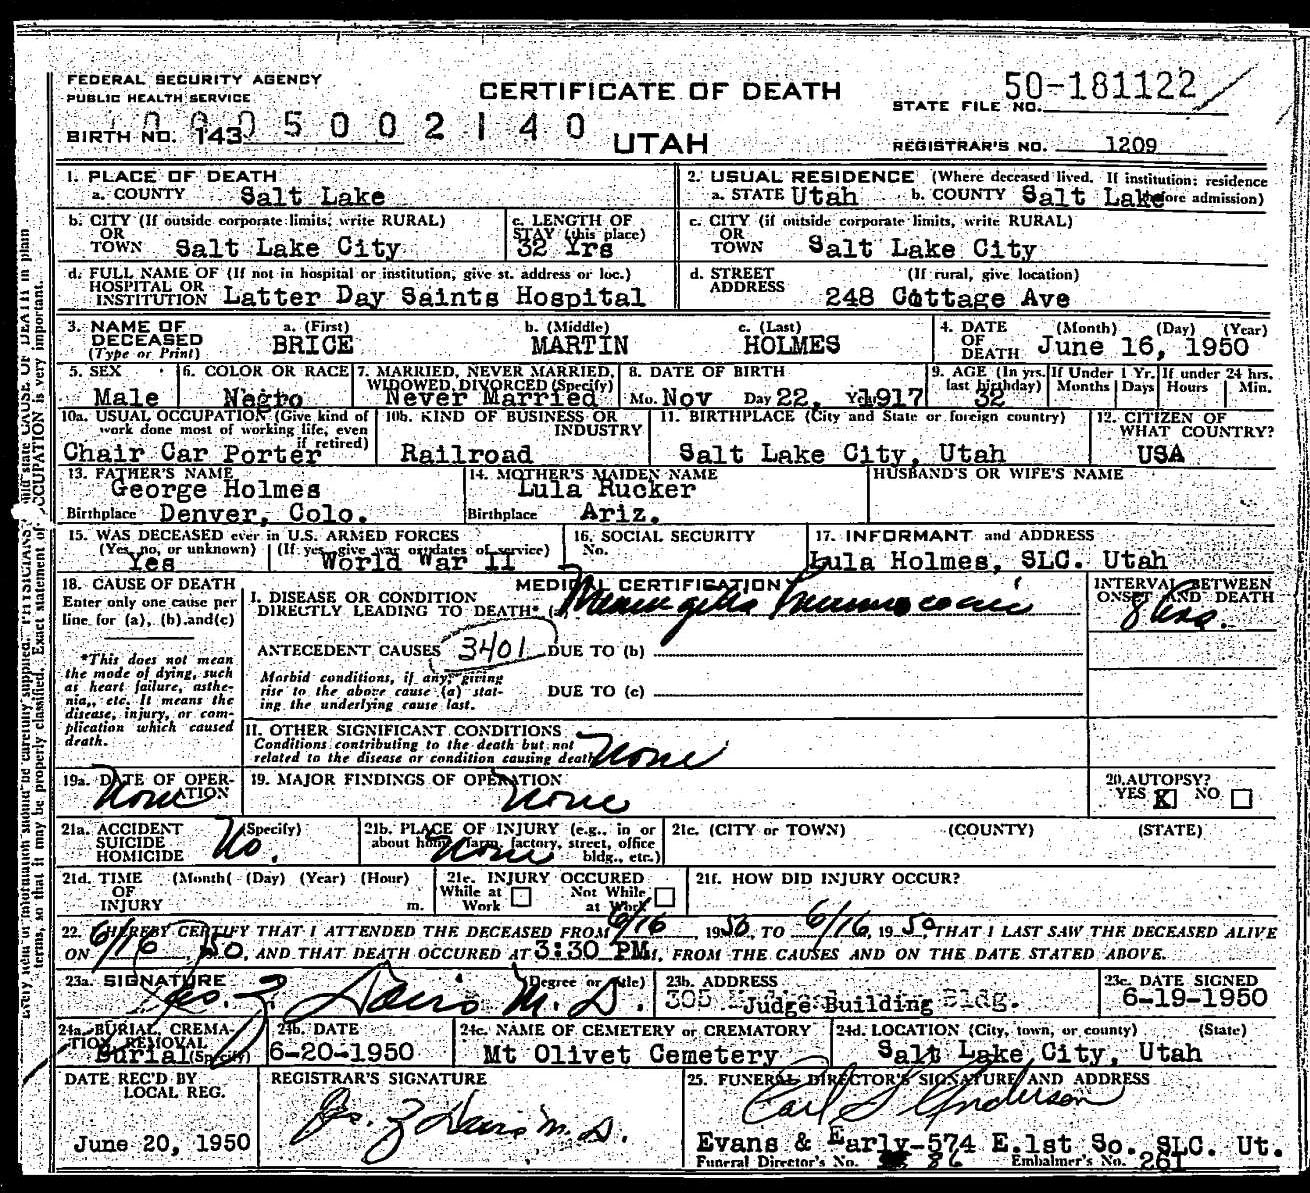 FEDERAL SECURITY AGENCY
PUBLIC HEALTH SERVICE
CERTIFICATE OF DEATH
50-181122
STATE FILE NO.
BIRTH NO. 143
0005002140
UTAH
REGISTRAR'S NO. 1209
1. PLACE OF DEATH
a. COUNTY Salt Lake
2. USUAL RESIDENCE (Where deceased lived. If institution: residence before admission)
a. STATE Utah b. COUNTY Salt Lake
b. CITY (If outside corporate limits, write RURAL)
OR
TOWN Salt Lake City
c. LENGTH OF
STAY (this place)
32 Yrs
c. CITY (if outside corporate limits, write RURAL)
OR
TOWN Salt Lake City
d. FULL NAME OF (If not in hospital or institution, give st. address or loc.)
HOSPITAL OR
INSTITUTION Latter Day Saints Hospital
d. STREET (If rural, give location)
ADDRESS
248 Cottage Ave
3. NAME OF
DECEASED
(Type or Print)
a. (First) b. (Middle) c. (Last)
BRICE MARTIN HOLMES
4. DATE (Month) (Day) (Year)
OF
DEATH June 16, 1950
5. SEX
Male
6. COLOR OR RACE
Negro
7. MARRIED, NEVER MARRIED,
WIDOWED, DIVORCED (Specify)
Never Married
8. DATE OF BIRTH
Mo. Nov Day 22, Yr. 1917
9. AGE (In yrs. last birthday)
32
If Under 1 Yr. Months Days
If under 24 hrs. Hours Min.
10a. USUAL OCCUPATION (Give kind of
work done most of working life, even
if retired)
Chair Car Porter
10b. KIND OF BUSINESS OR
INDUSTRY
Railroad
11. BIRTHPLACE (City and State or foreign country)
Salt Lake City, Utah
12. CITIZEN OF
WHAT COUNTRY?
USA
13. FATHER'S NAME
George Holmes
Birthplace Denver, Colo.
14. MOTHER'S MAIDEN NAME
Lula Rucker
Birthplace Ariz.
HUSBAND'S OR WIFE'S NAME
15. WAS DECEASED ever in U.S. ARMED FORCES
(Yes, no, or unknown) (If yes, give war or dates of service)
Yes World War II
16. SOCIAL SECURITY
No.
17. INFORMANT and ADDRESS
Lula Holmes, SLC. Utah
18. CAUSE OF DEATH
Enter only one cause per
line for (a), (b).and(c)
*This does not mean
the mode of dying, such
as heart failure, asthe-
nia,, etc. It means the
disease, injury, or com-
plication which caused
death.
MEDICAL CERTIFICATION
I. DISEASE OR CONDITION
DIRECTLY LEADING TO DEATH* (a)
INTERVAL BETWEEN
ONSET AND DEATH
8 hrs.
ANTECEDENT CAUSES 3401 DUE TO (b)
Morbid conditions, if any, giving
rise to the above cause (a) stat-
ing the underlying cause last.
DUE TO (c)
II. OTHER SIGNIFICANT CONDITIONS
Conditions contributing to the death but not
related to the disease or condition causing death
None
19a. DATE OF OPER-
ATION
None
19. MAJOR FINDINGS OF OPERATION
None
20. AUTOPSY?
YES X NO
21a. ACCIDENT (Specify)
SUICIDE
HOMICIDE
No.
21b. PLACE OF INJURY (e.g., in or
about home, farm, factory, street, office
bldg., etc.)
None
21c. (CITY or TOWN) (COUNTY) (STATE)
21d. TIME (Month( (Day) (Year) (Hour)
OF
INJURY m.
21e. INJURY OCCURED
While at Work Not While at Work
21f. HOW DID INJURY OCCUR?
22. I HEREBY CERTIFY THAT I ATTENDED THE DECEASED FROM 6/16 1950, TO 6/16, 1950 THAT I LAST SAW THE DECEASED ALIVE
ON 6/16, 50, AND THAT DEATH OCCURED AT 3:30 PM., FROM THE CAUSES AND ON THE DATE STATED ABOVE.
23a. SIGNATURE (Degree or title)
Jos. Z Davis M.D.
23b. ADDRESS
305 Judge Building Bldg.
23c. DATE SIGNED
6-19-1950
24a. BURIAL, CREMA-
TION, REMOVAL
Burial (Specify)
24b. DATE
6-20-1950
24c. NAME OF CEMETERY or CREMATORY
Mt Olivet Cemetery
24d. LOCATION (City, town, or county) (State)
Salt Lake City, Utah
DATE REC'D BY
LOCAL REG.
June 20, 1950
REGISTRAR'S SIGNATURE
Jos. Z Davis M.D.
25. FUNERAL DIRECTOR'S SIGNATURE AND ADDRESS
Carl S Anderson
Evans & Early-574 E.1st So. SLC. Ut.
Funeral Director's No. 86 Embalmer's No. 261